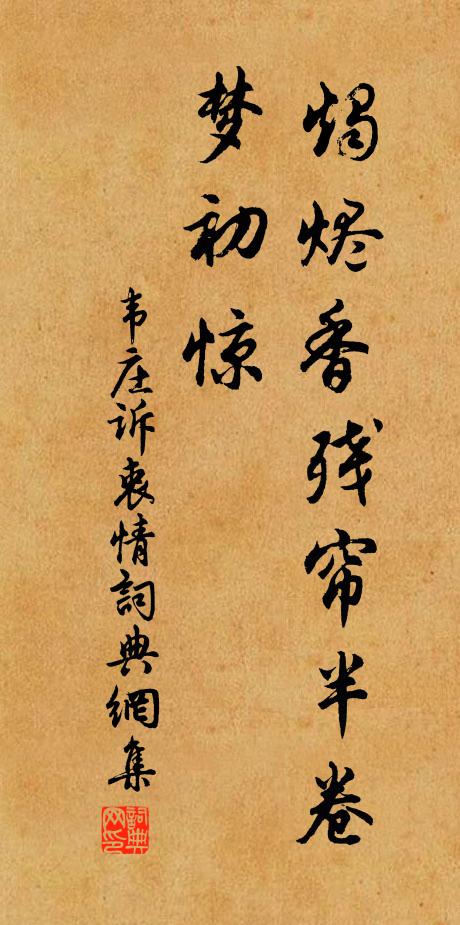 烛烬香残帘半卷
梦初惊
韦庄诉衷情詞典網集
詞典网印